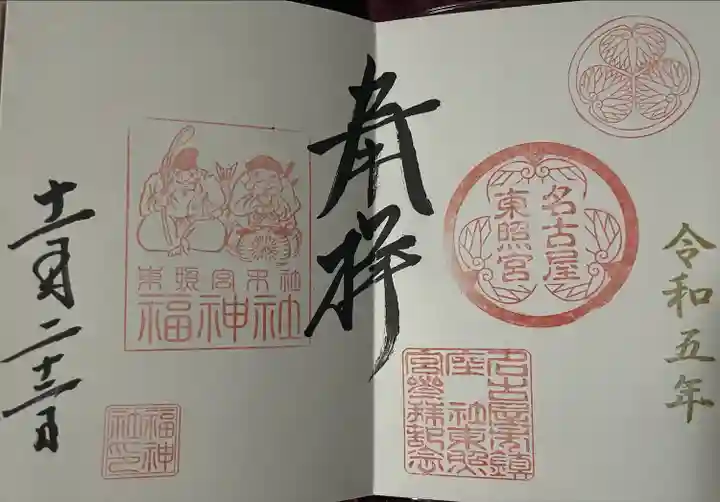 令和五年
名古屋
東照宮
名古屋市鎮
座 社東照
宮參拜記念
奉拝
東照宮末社
福神社
十一月二十三日
福神
社印